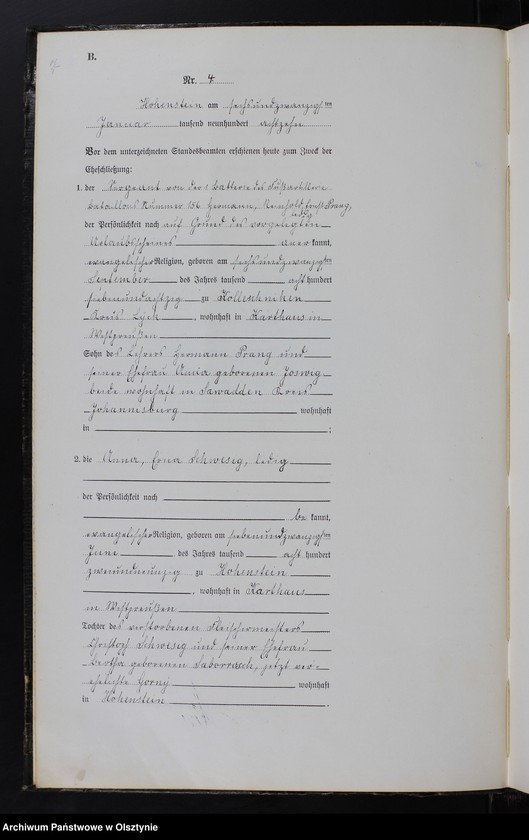 B.
Nr. 4.
Hohenstein am sechsundzwanzigsten
Januar tausend neunhundert achtzehn
Vor dem unterzeichneten Standesbeamten erschienen heute zum Zweck der
Eheschließung:
1. der Sergeant von der Batterie des Fußartillerie
bataillons Nummer 156 Hermann, Reinhold, Ernst Prang,
ledig
der Persönlichkeit nach auf Grund des vorgelegten
Urlaubsscheines anerkannt,
evangelischer Religion, geboren am sechsundzwanzigsten
September des Jahres tausend achthundert
siebenundachtzig zu Kolleschnicken
Kreis Lyck, wohnhaft in Karthaus in
Westpreußen
Sohn des Lehrers Hermann Prang und
seiner Ehefrau Anna geborenen Joswig
beide wohnhaft in Sawadden Kreis
Johannisburg wohnhaft
in ;
2. die Anna, Erna Schwesig, ledig
der Persönlichkeit nach
bekannt,
evangelischer Religion, geboren am siebenundzwanzigsten
Juni des Jahres tausend achthundert
zweiundneunzig zu Hohenstein
, wohnhaft in Karthaus
in Westpreußen
Tochter des verstorbenen Fleischermeisters
Christoph Schwesig und seiner Ehefrau
Bertha geborenen Saborrosch, jetzt ver-
ehelichte Gorny wohnhaft
in Hohenstein.
Archiwum Państwowe w Olsztynie